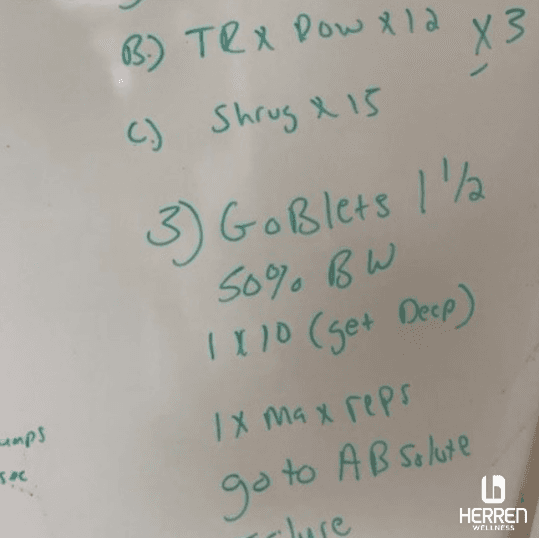 B.) TRX Row x12 X3
C.) Shrug x 15
3) GoBlets 1 1/2
50% BW
1 x 10 (get Deep)
1x max reps
go to ABSolute
umps
sec
HERREN
WELLNESS